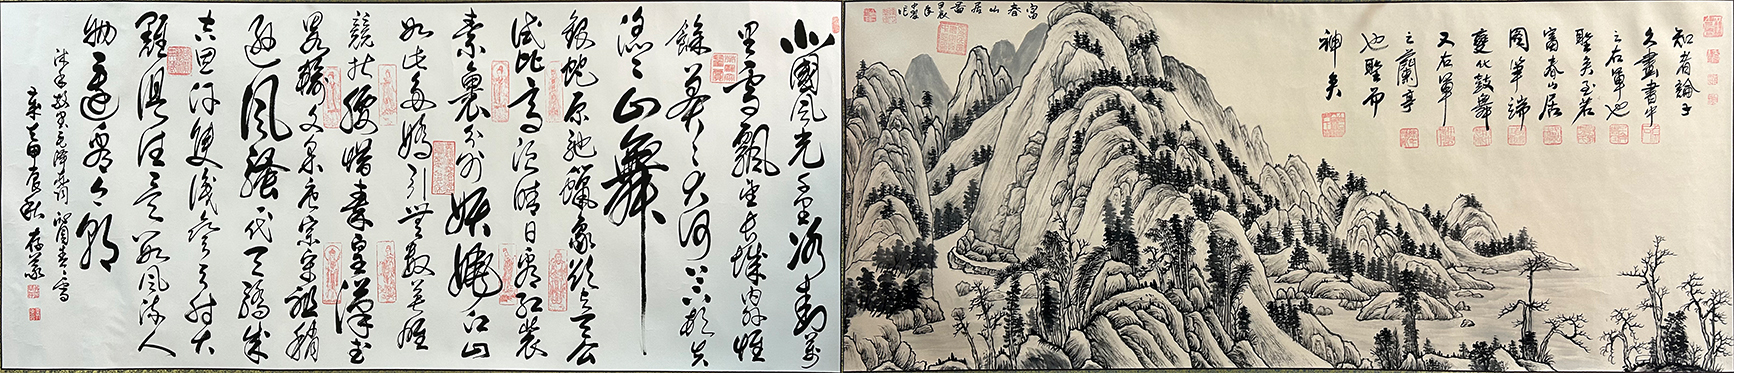 知者論子
久畫書中
之右軍也
聖矣至若
富春山居
圖筆端
變化鼓舞
又右軍
之蘭亭
也聖而
神矣
富春山居圖
北國風光千里冰封萬
里雪飄望長城內外惟
餘莽々大河上下頓失
滔々山舞
銀蛇原馳蠟象欲與天公
試比高須晴日看紅裝
素裹分外妖嬈江山
如此多嬌引無數英雄
競折腰惜秦皇漢武
略輸文采唐宗宋祖稍
遜風騷一代天驕成
吉思汗隻識彎弓射大
雕俱往矣數風流人
物還看今朝
毛澤東詞沁園春雪
甲辰秋存義